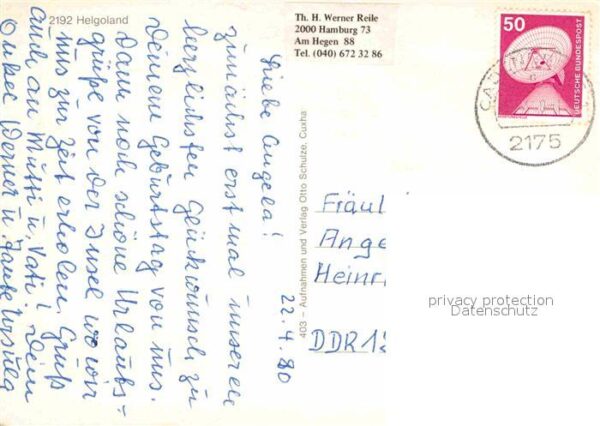 2192 Helgoland
Th. H. Werner Reile
2000 Hamburg 73
Am Hegen 88
Tel. (040) 672 32 86
50
DEUTSCHE BUNDESPOST
2175
Liebe Angela!
zunächst erst mal unseren
herzlichsten Glückwunsch zu
Deinem Geburtstag von uns.
Dann noch schöne Urlaubs=
grüße von der Insel wo wir
uns zur Zeit erholen. Gruß
auch an Mutti u. Vati! Dein
Onkel Werner u. Tante Ursula
22.4.80
403 – Aufnahmen und Verlag Otto Schulze, Cuxha
Fräul
Ange
Heinr
DDR 12
privacy protection
Datenschutz